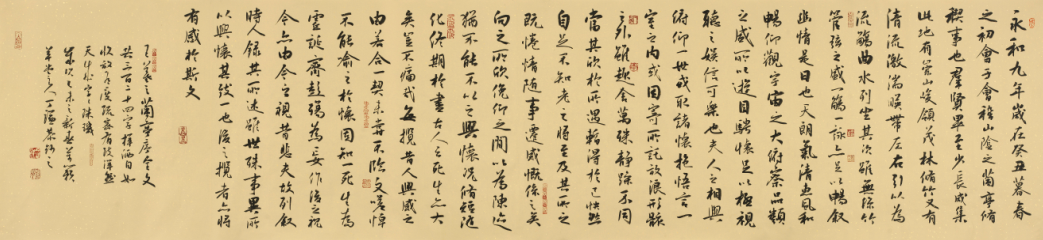 永和九年歲在癸丑暮春
之初會于會稽山陰之蘭亭脩
禊事也群賢畢至少長咸集
此地有崇山峻領茂林脩竹又有
清流激湍暎帶左右引以為
流觴曲水列坐其次雖無絲竹
管弦之盛一觴一詠亦足以暢敘
幽情是日也天朗氣清惠風和
暢仰觀宇宙之大俯察品類
之盛所以遊目騁懷足以極視
聽之娛信可樂也夫人之相與
俯仰一世或取諸懷抱悟言一
室之內或因寄所託放浪形骸
之外雖趣舍萬殊靜躁不同
當其欣於所遇暫得於己快然
自足不知老之將至及其所之
既惓情隨事遷感慨係之矣
向之所欣俛仰之間以為陳迹
猶不能不以之興懷況脩短隨
化終期於盡古人云死生亦大
矣豈不痛哉每攬昔人興感之
由若合一契未嘗不臨文嗟悼
不能喻之於懷固知一死生為
虛誕齊彭殤為妄作後之視
今亦由今之視昔悲夫故列敘
時人錄其所述雖世殊事異所
以興懷其致一也後之攬者亦將
有感於斯文